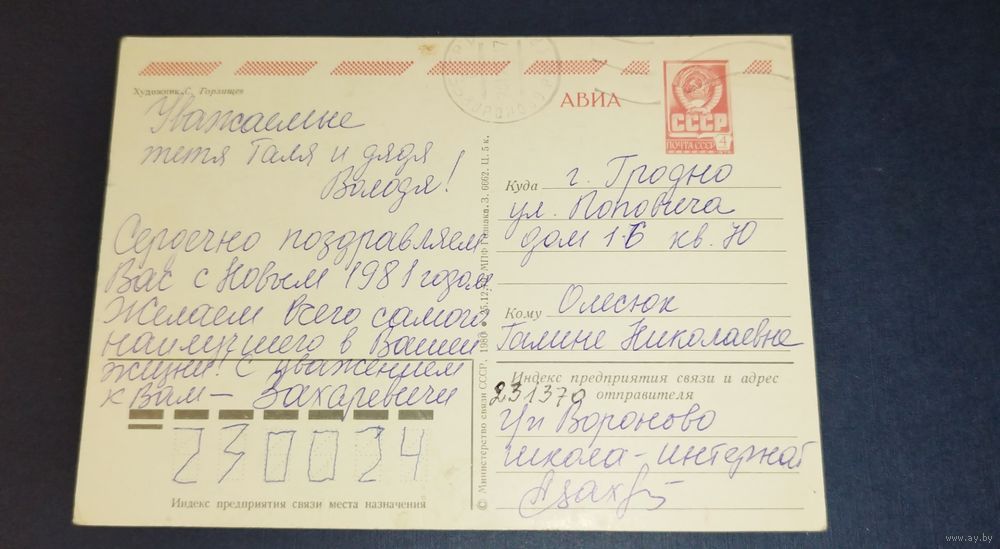 Художник С. Горлищев
Уважаемые
тетя Галя и дядя
Володя!
Сердечно поздравляем
Вас с Новым 1981 годом
Желаем всего самого
наилучшего в Вашей
жизни! С уважением
к Вам — Захаревичи
230024
Индекс предприятия связи места назначения
© Министерство связи СССР, 1980 • 26.12. МПФ Гознака. З. 6662. Ц. 5 к.
АВИА
СССР
ПОЧТА СССР 4
Куда г. Гродно
ул. Поповича
дом 16 кв. 70
Кому Олесюк
Галине Николаевне
Индекс предприятия связи и адрес
231370 отправителя
г/п Вороново
школа-интернат
www.ay.by